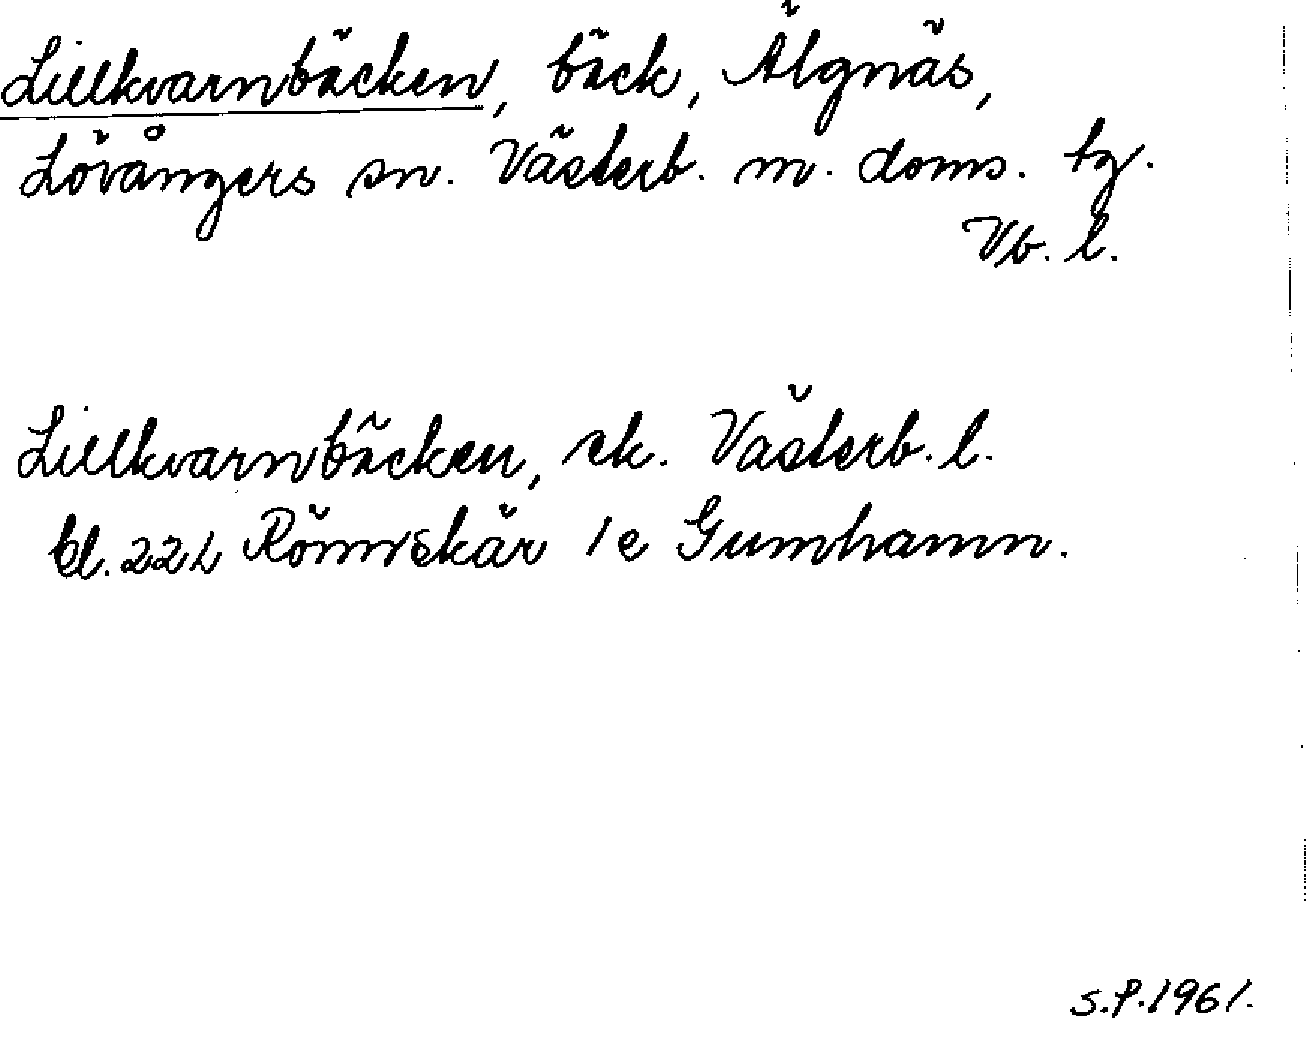 Lillkvarnbäcken, bäck, Älgnäs,
Lövångers sn. Västerb. m. doms. tg.
Vb. l.
Lillkvarnbäcken, ek. Västerb. l.
bl. 22 L Rönnskär 1 e Gumhamn.
S.P. 1961.